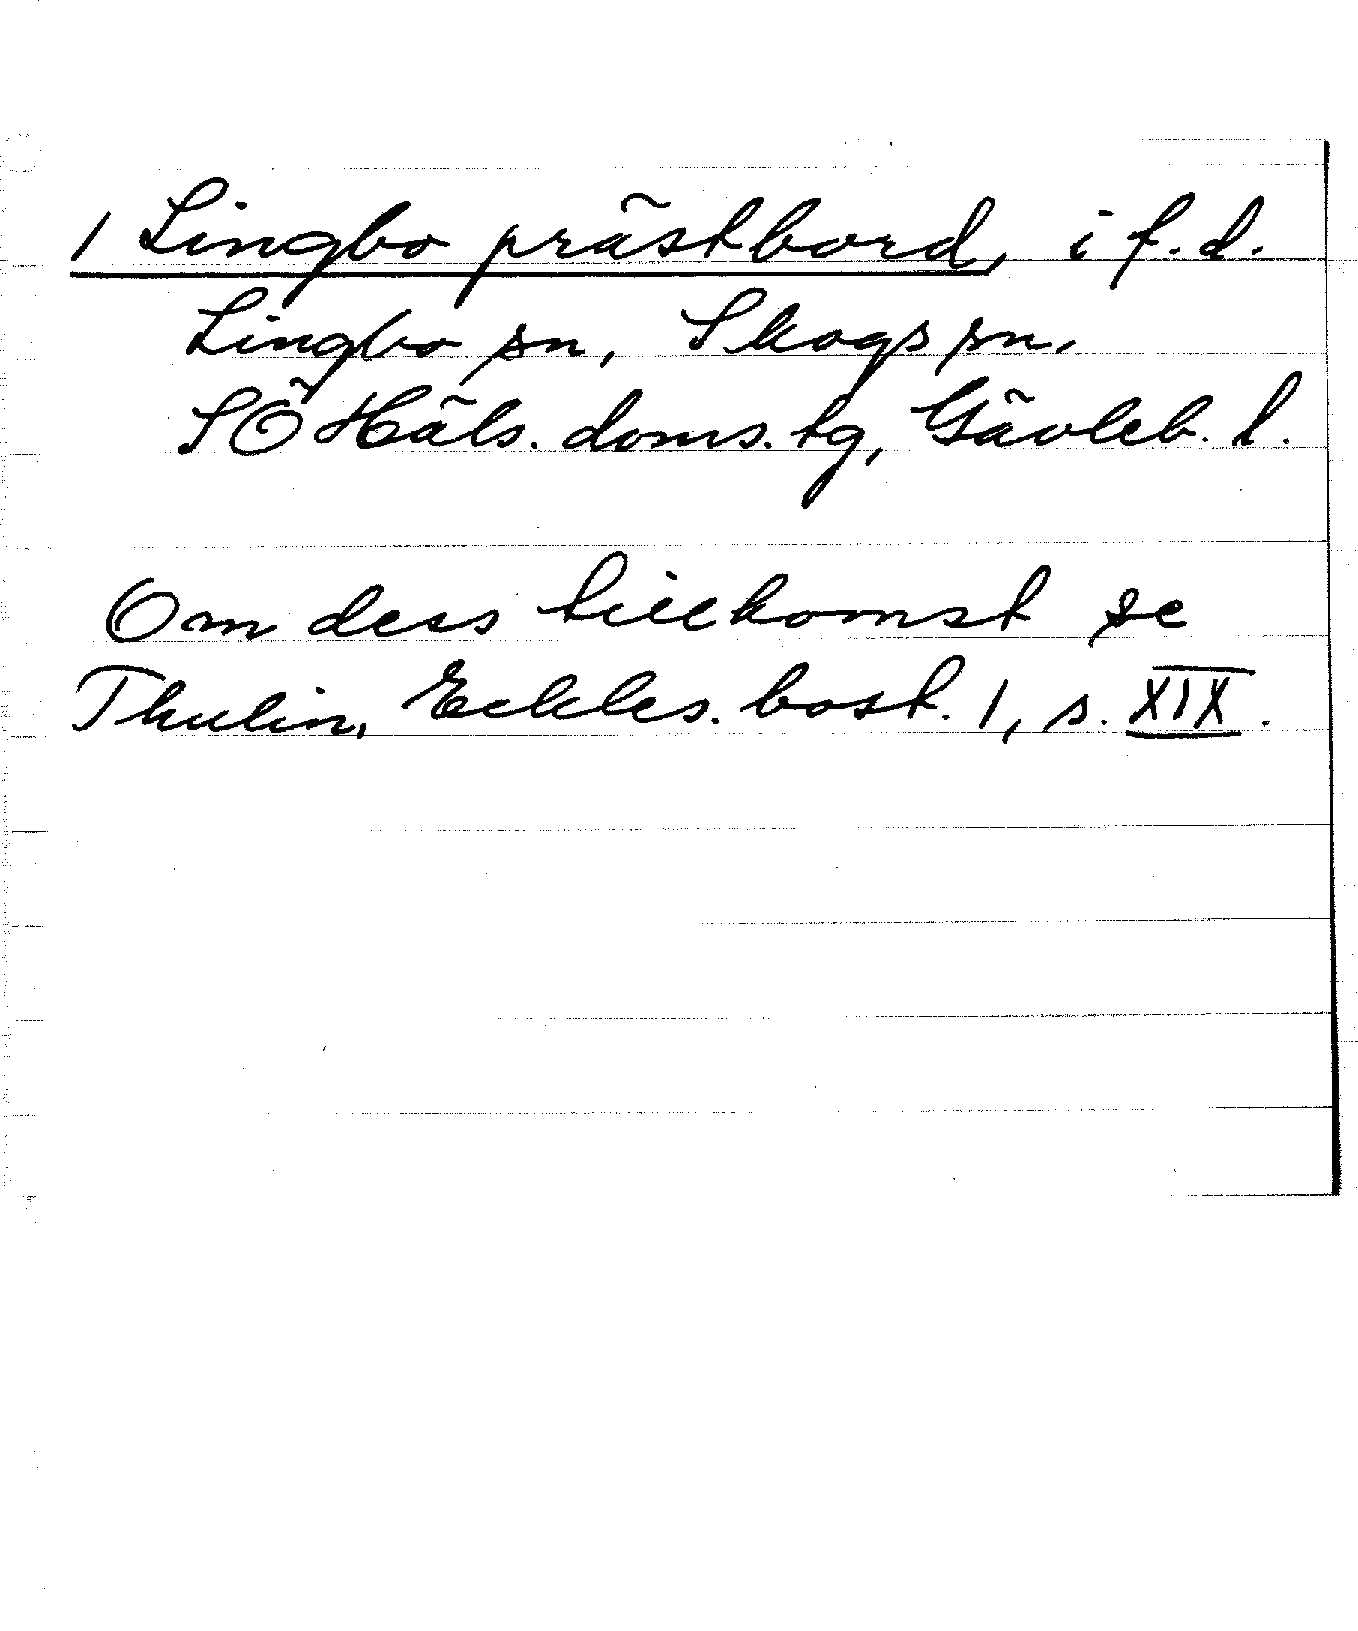 1 Lingbo prästbord, i f.d.
Lingbo sn, Skogs sn,
SÖ Häls. doms. tg, Gävleb. l.
Om dess tillkomst se
Thulin, Eckles. bost. 1, s. XIX.